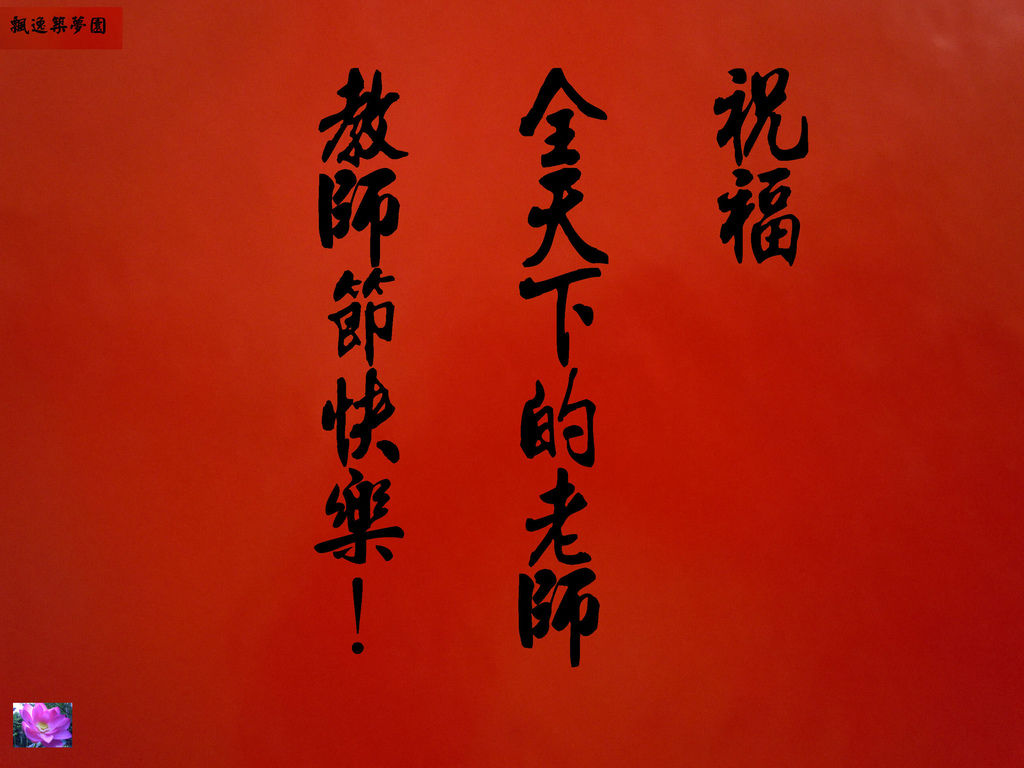 飄逸築夢園
祝福
全天下的老師
教師節快樂！